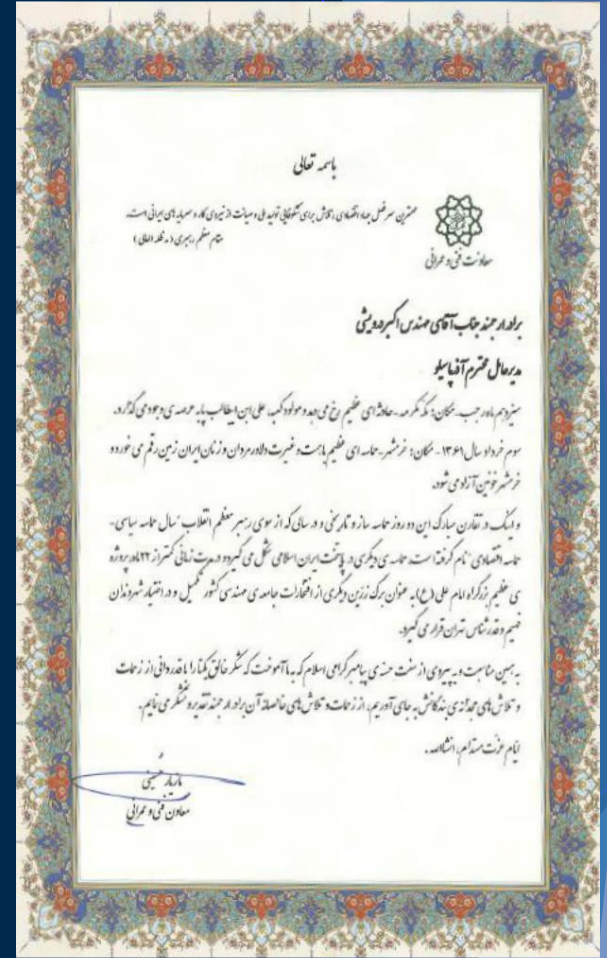 باسمه تعالی
مهمترین سرفصل جهاد اقتصادی، تلاش برای شکوفایی تولید ملی و صیانت از نیروی کار و سرمایه های ایرانی است.
مقام معظم رهبری (مدظله العالی)
معاونت فنی و عمرانی
برادر ارجمند جناب آقای مهندس اکبر درویشی
مدیرعامل محترم آذیاسیلو
سیزدهم ماه رجب - مکان: مکه مکرمه - حادثه ای عظیم رخ می دهد و مولود کعبه، علی ابن ابیطالب پا به عرصه ی وجود می گذارد.
سوم خرداد سال ۱۳۶۱ - مکان: خرمشهر - حماسه ای عظیم با همت و غیرت دلاورمردان و زنان ایران زمین رقم می خورد و
خرمشهر خونین آزاد می شود.
و اینک در تقارن مبارک این دو روز حماسه ساز و تاریخی و در سالی که از سوی رهبر معظم انقلاب "سال حماسه سیاسی -
حماسه اقتصادی" نام گرفته است، حماسه ی دیگری در پایتخت ایران اسلامی شکل می گیرد و در مدت زمانی کمتر از ۲۲ ماه، پروژه
ی عظیم بزرگراه امام علی (ع) به عنوان برگ زرین دیگری از افتخارات جامعه ی مهندسی کشور تکمیل و در اختیار شهروندان
فهیم و قدرشناس تهران قرار می گیرد.
به همین مناسبت و به پیروی از سنت حسنه ی پیامبر گرامی اسلام که به ما آموخت که شکر خالق یکتا را با قدردانی از زحمات
و تلاش های مجدانه ی بندگانش به جای آوریم، از زحمات و تلاش های خالصانه آن برادر ارجمند تقدیر و تشکر می نمایم.
ایام عزت مستدام، انشاالله.
مازیار حسینی
معاون فنی و عمرانی